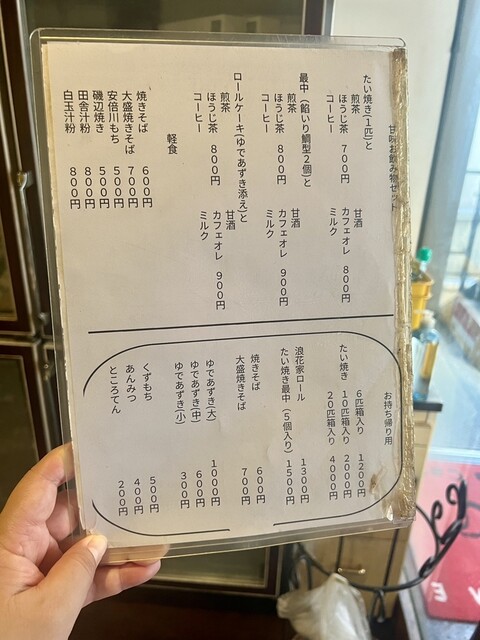 甘味お飲み物セット
たい焼き(1匹)と
煎茶
ほうじ茶 700円
コーヒー
甘酒
カフェオレ 800円
ミルク
最中(餡いり鯛型2個)と
煎茶
ほうじ茶 800円
コーヒー
甘酒
カフェオレ 900円
ミルク
ロールケーキ(ゆであずき添え)と
煎茶
ほうじ茶 800円
コーヒー
甘酒
カフェオレ 900円
ミルク
軽食
焼きそば 600円
大盛焼きそば 700円
安倍川もち 500円
磯辺焼き 500円
田舎汁粉 800円
白玉汁粉 800円
お持ち帰り用
たい焼き 6匹箱入り 1200円
10匹箱入り 2000円
20匹箱入り 4000円
浪花家ロール 1300円
たい焼き最中(5個入り) 1500円
焼きそば 600円
大盛焼きそば 700円
ゆであずき(大) 1000円
ゆであずき(中) 600円
ゆであずき(小) 300円
くずもち 500円
あんみつ 400円
ところてん 200円